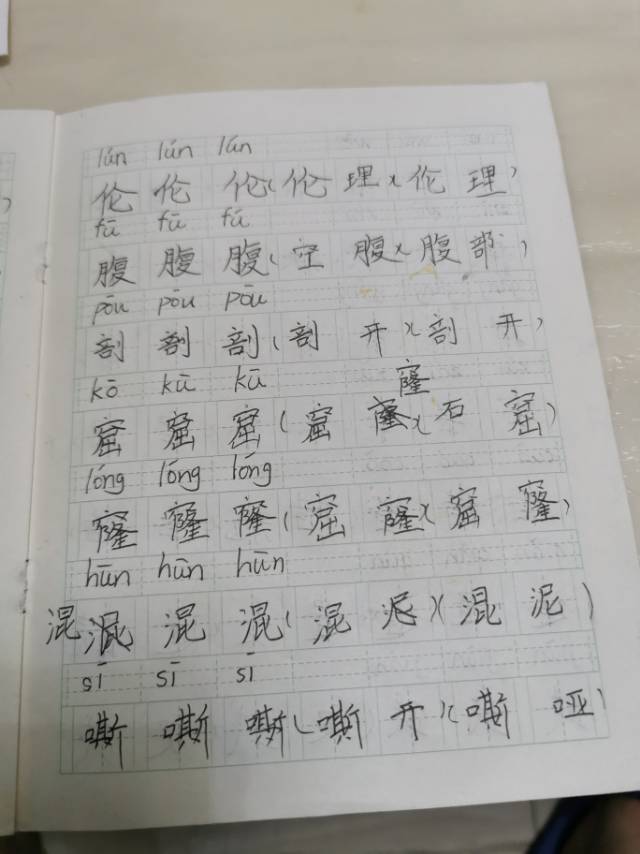 lún lún lún
伦 伦 伦(伦 理)(伦 理)
fū fū fú
腹 腹 腹(空 腹)(腹 部)
pōu pōu pōu
剖 剖 剖(剖 开)(剖 开)
kō kū kū
窿
窟 窟 窟(窟 窿)(石 窟)
lóng lóng lóng
窿 窿 窿(窟 窿)(窟 窿)
hūn hūn hūn
混 混 混 混(混 泥)(混 泥)
sī sī sī
嘶 嘶 嘶(嘶 开)(嘶 哑)